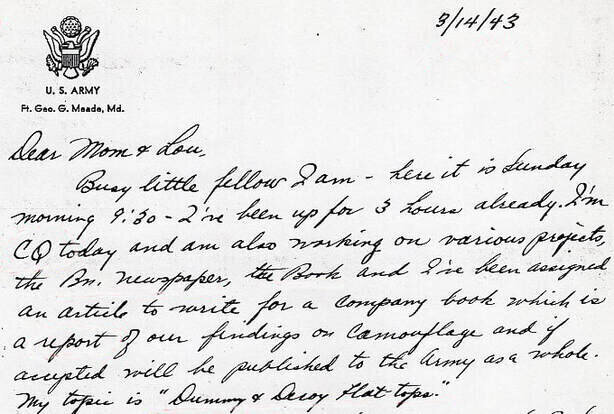 3/14/43
U. S. ARMY
Ft. Geo. G. Meade, Md.
Dear Mom & Lou,
Busy little fellow I am - here it is Sunday
morning 9:30 - I've been up for 3 hours already. I'm
CQ today and am also working on various projects,
the Bn. newspaper, the Book and I've been assigned
an article to write for a company book which is
a report of our findings on camouflage and if
accepted will be published to the Army as a whole.
My topic is "Dummy & Decoy Flat-tops."